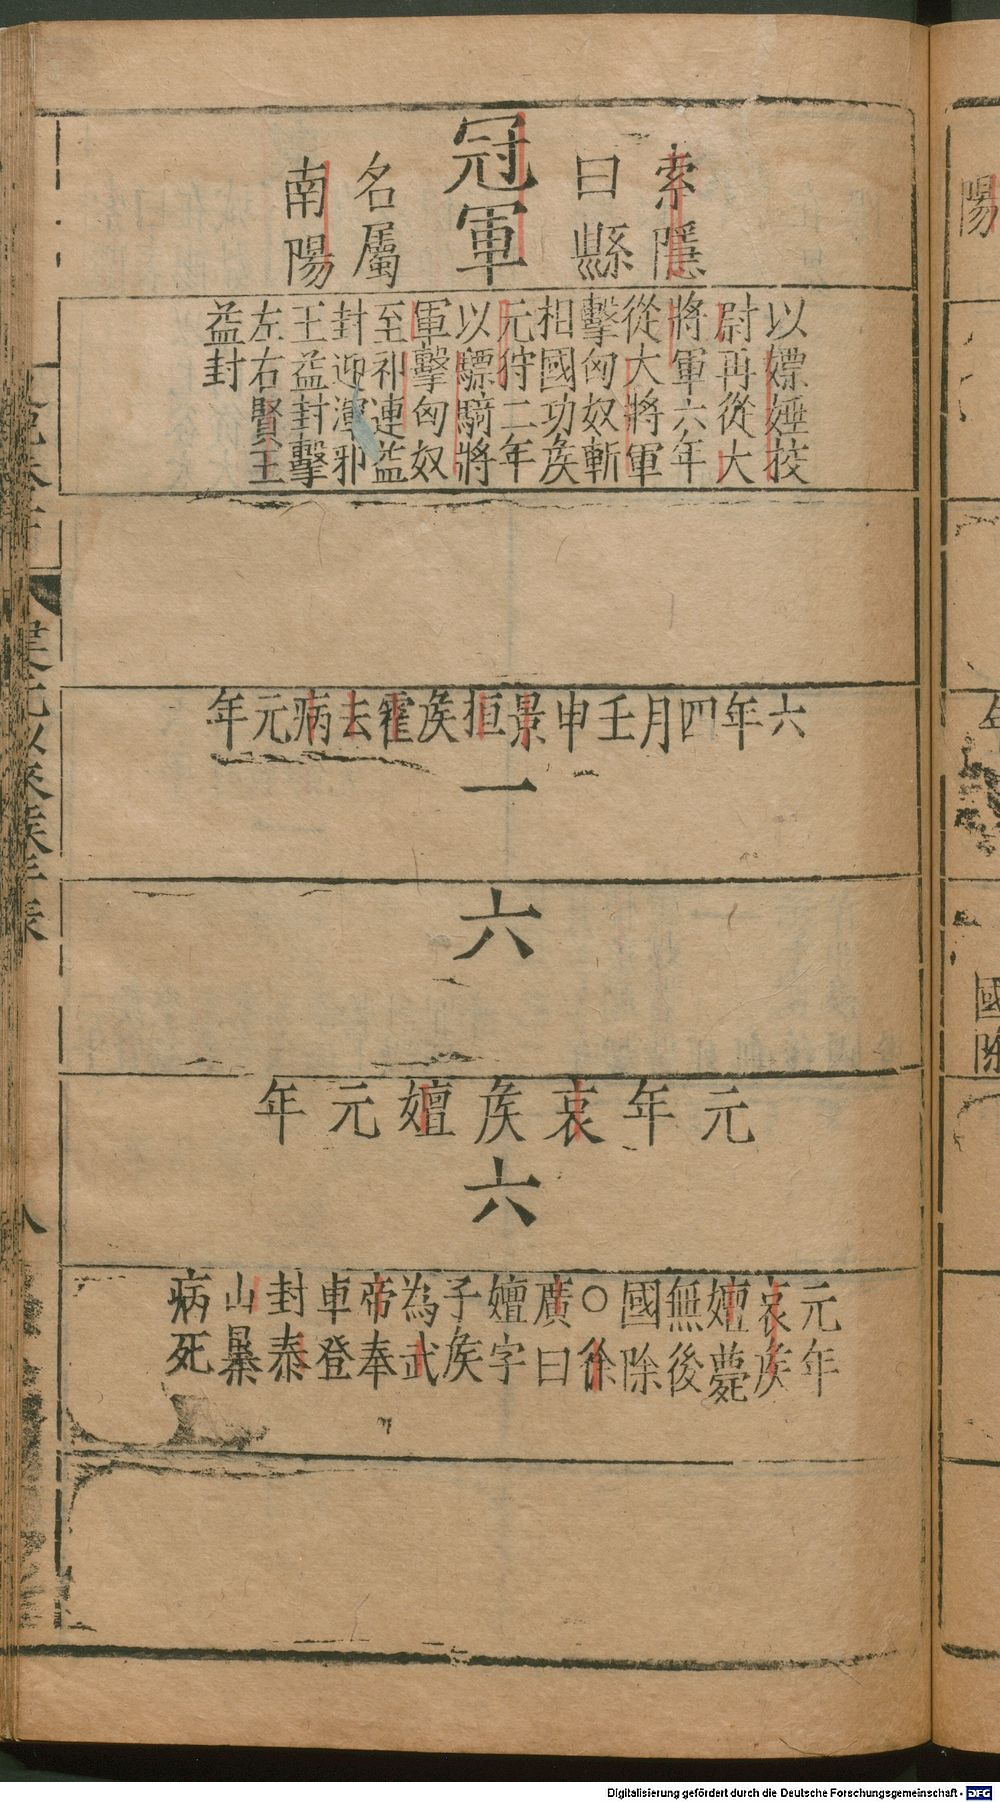 冠軍
索隱
曰縣
名屬
南陽
以嫖姬挍
尉再從大
將軍六年
從大將軍
擊匈奴斬
相國功矦
元狩二年
以驃騎將
軍擊匈奴
至祁連益
封迎渾邪
王益封擊
左右賢王
益封
六年四月壬申景桓矦霍去病元年
一
六
元年哀矦嬗元年
六
元年
哀矦
嬗薨
無後
國除
○徐
廣曰
嬗字
子矦
為武
帝奉
車登
封泰
山暴
病死
以來矦年表
八
陽
國除
Digitalisierung gefördert durch die Deutsche Forschungsgemeinschaft - DFG